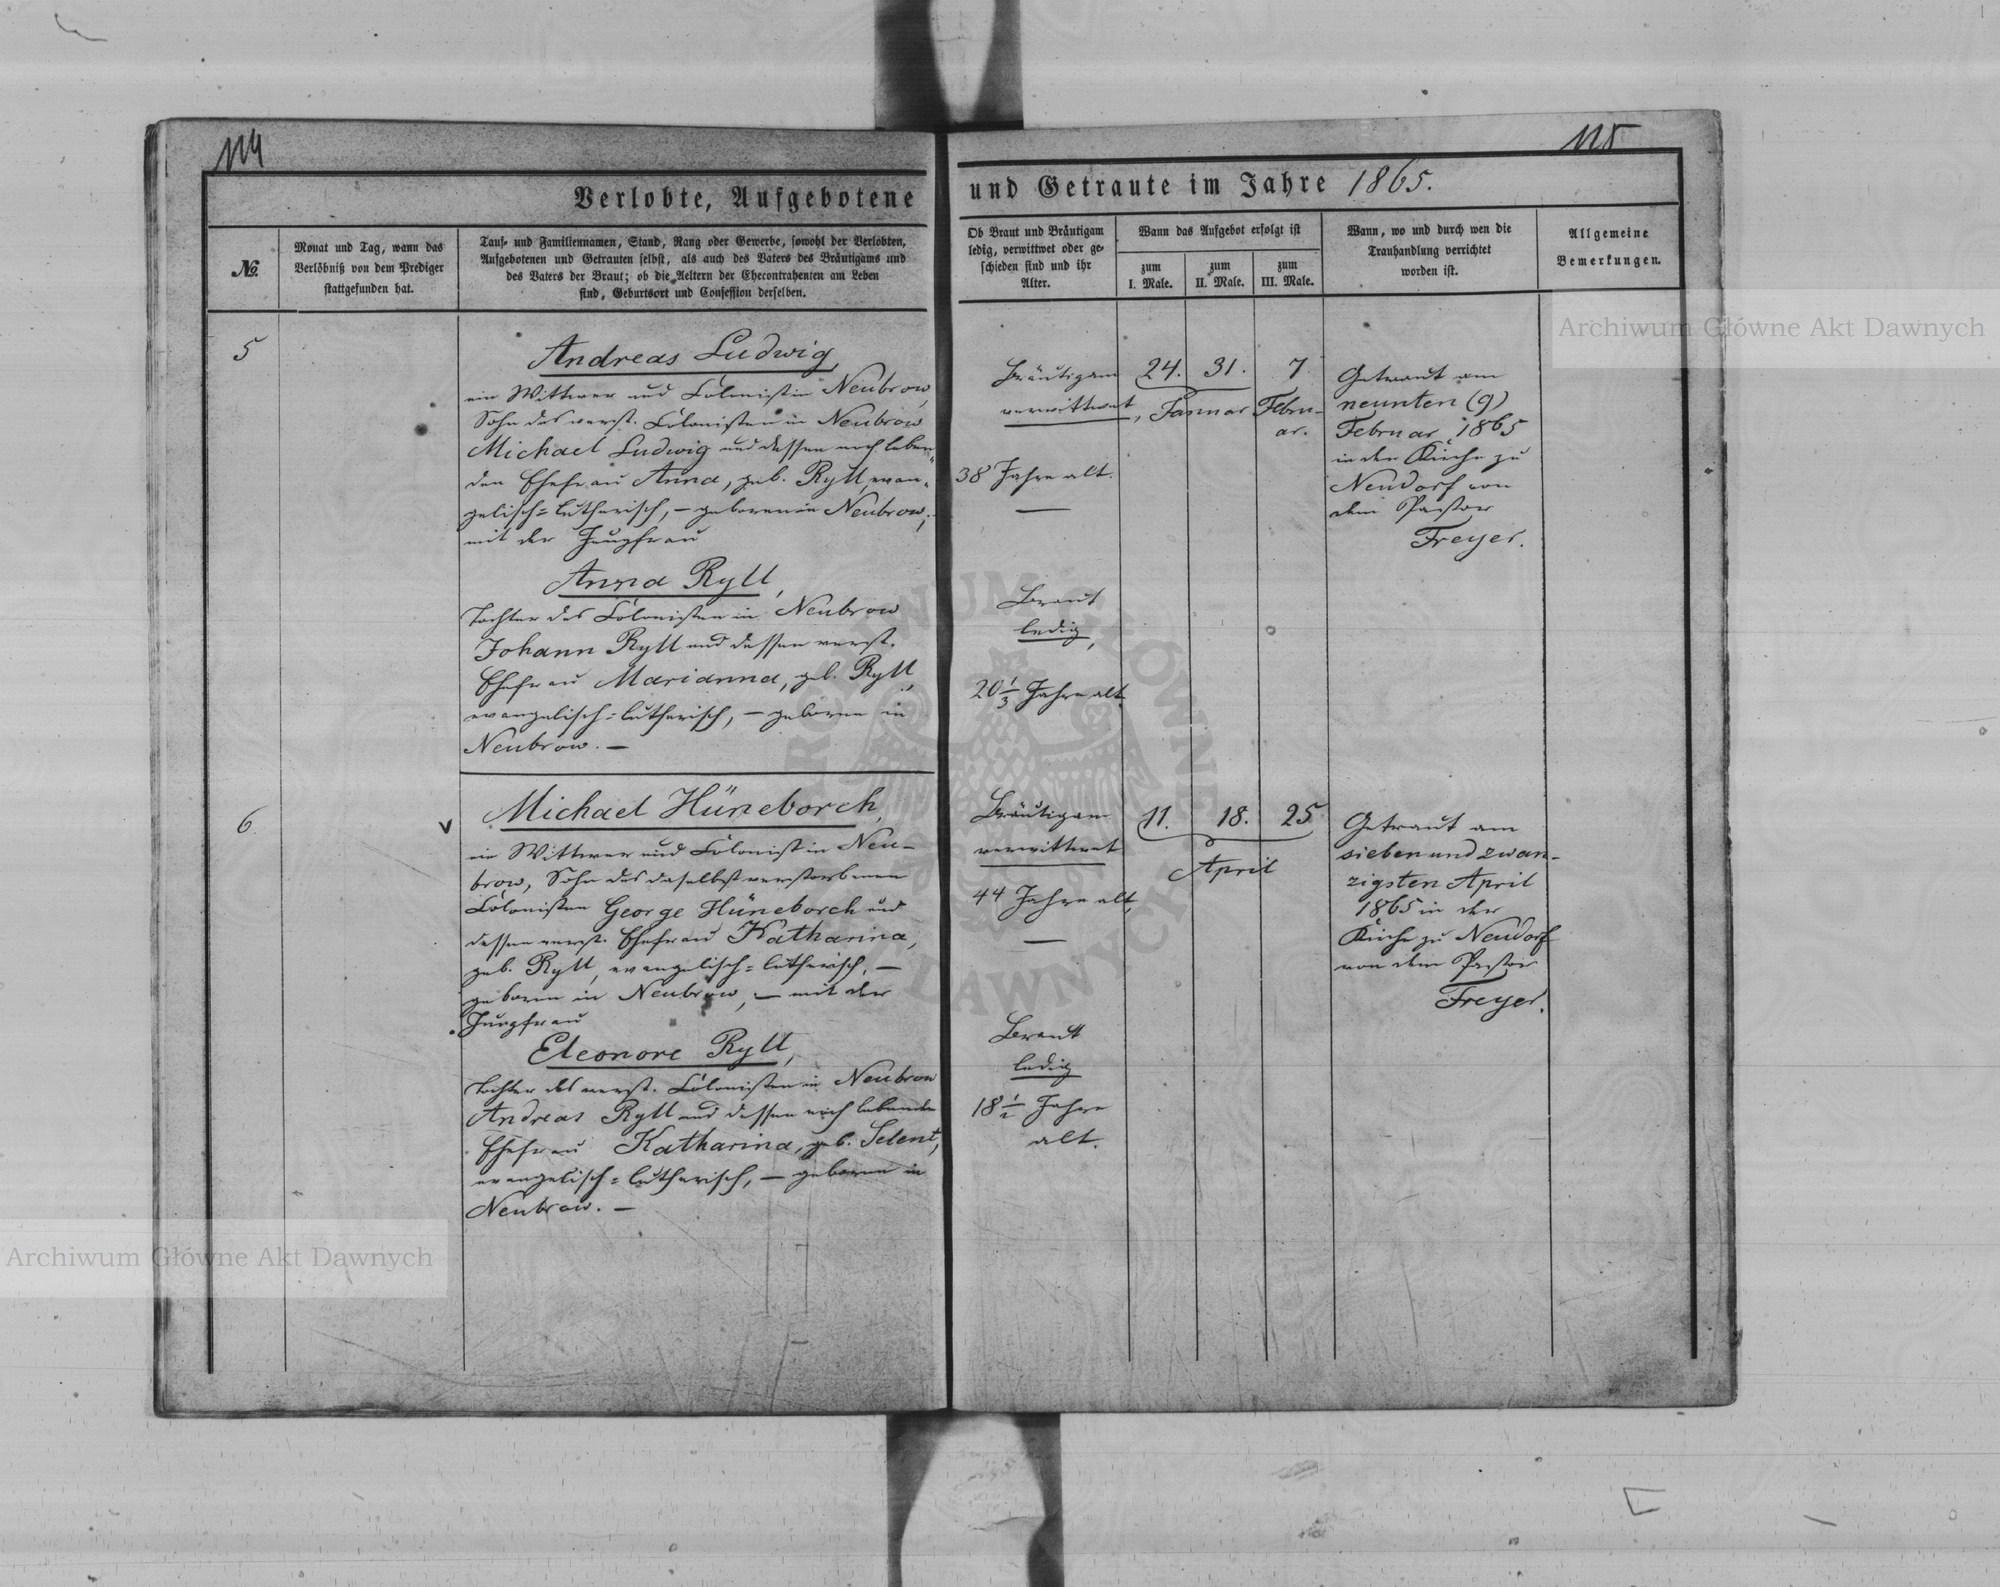 114
115
Verlobte, Aufgebotene
und Getraute im Jahre 1865.
№.
Monat und Tag, wann das
Verlöbniß von dem Prediger
stattgefunden hat.
Tauf- und Familiennamen, Stand, Rang oder Gewerbe, sowohl der Verlobten,
Aufgebotenen und Getrauten selbst, als auch des Vaters des Bräutigams und
des Vaters der Braut; ob die Aeltern der Ehecontrahenten am Leben
sind, Geburtsort und Confession derselben.
Ob Braut und Bräutigam
ledig, verwittwet oder ge-
schieden sind und ihr
Alter.
Wann das Aufgebot erfolgt ist
zum
I. Male.
zum
II. Male.
zum
III. Male.
Wann, wo und durch wen die
Trauhandlung verrichtet
worden ist.
Allgemeine
Bemerkungen.
5
Andreas Ludwig,
ein Wittwer und Colonist in Neubrow,
Sohn des verst. Colonisten in Neubrow
Michael Ludwig und dessen noch leben-
den Ehefrau Anna, geb. Rytt, evan-
gelisch-lutherisch, – geboren in Neubrow;
mit der Jungfrau
Anna Rytt,
Tochter des Colonisten in Neubrow
Johann Rytt und dessen verst.
Ehefrau Marianna, geb. Rytt,
evangelisch-lutherisch, – geboren in
Neubrow. –
Bräutigam
verwittwet,
38 Jahre alt.
Braut
ledig,
20 1/3 Jahre alt.
24. 31. 7.
Januar Febru-
ar.
Getraut am
neunten (9)
Februar 1865
in der Kirche zu
Neudorf von
dem Pastor
Freyer.
6.
Michael Hüneborch,
ein Wittwer und Colonist in Neu-
brow, Sohn des daselbst verstorbenen
Colonisten George Hüneborch und
dessen verst. Ehefrau Katharina,
geb. Rytt, evangelisch-lutherisch, –
geboren in Neubrow, – mit der
Jungfrau
Eleonore Rytt,
Tochter des verst. Colonisten in Neubrow
Andreas Rytt und dessen noch lebende
Ehefrau Katharina, geb. Selent,
evangelisch-lutherisch, – geboren in
Neubrow. –
Bräutigam
verwittwet
44 Jahre alt,
Braut
ledig
18 1/2 Jahre
alt.
11. 18. 25
April
Getraut am
sieben und zwan-
zigsten April
1865 in der
Kirche zu Neudorf
von dem Pastor
Freyer.
Archiwum Główne Akt Dawnych
Archiwum Główne Akt Dawnych